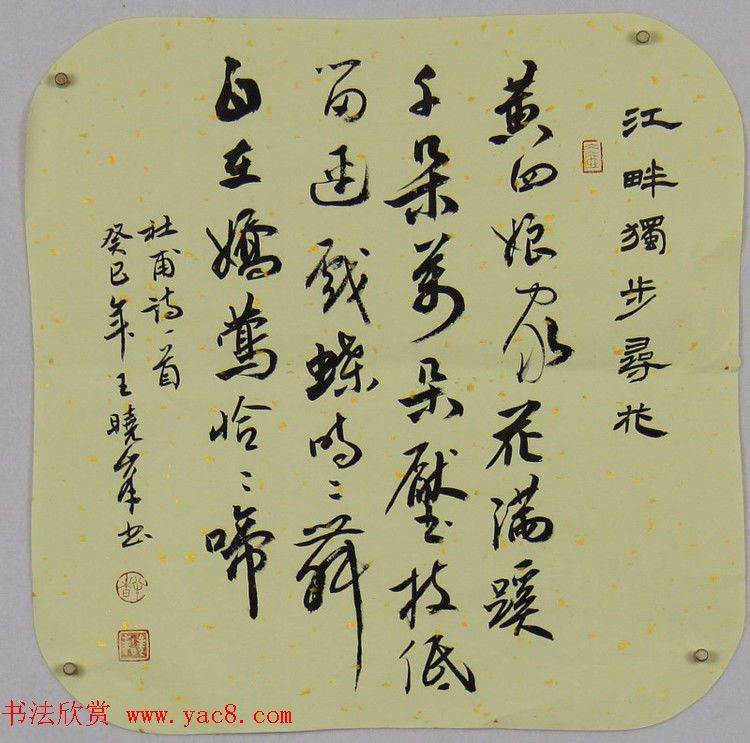 江畔獨步尋花
黄四娘家花滿蹊
千朵萬朵壓枝低
留連戲蝶時〻舞
自在嬌鶯恰〻啼
杜甫詩一首
癸巳年王曉书
书法欣赏 www.yac8.com